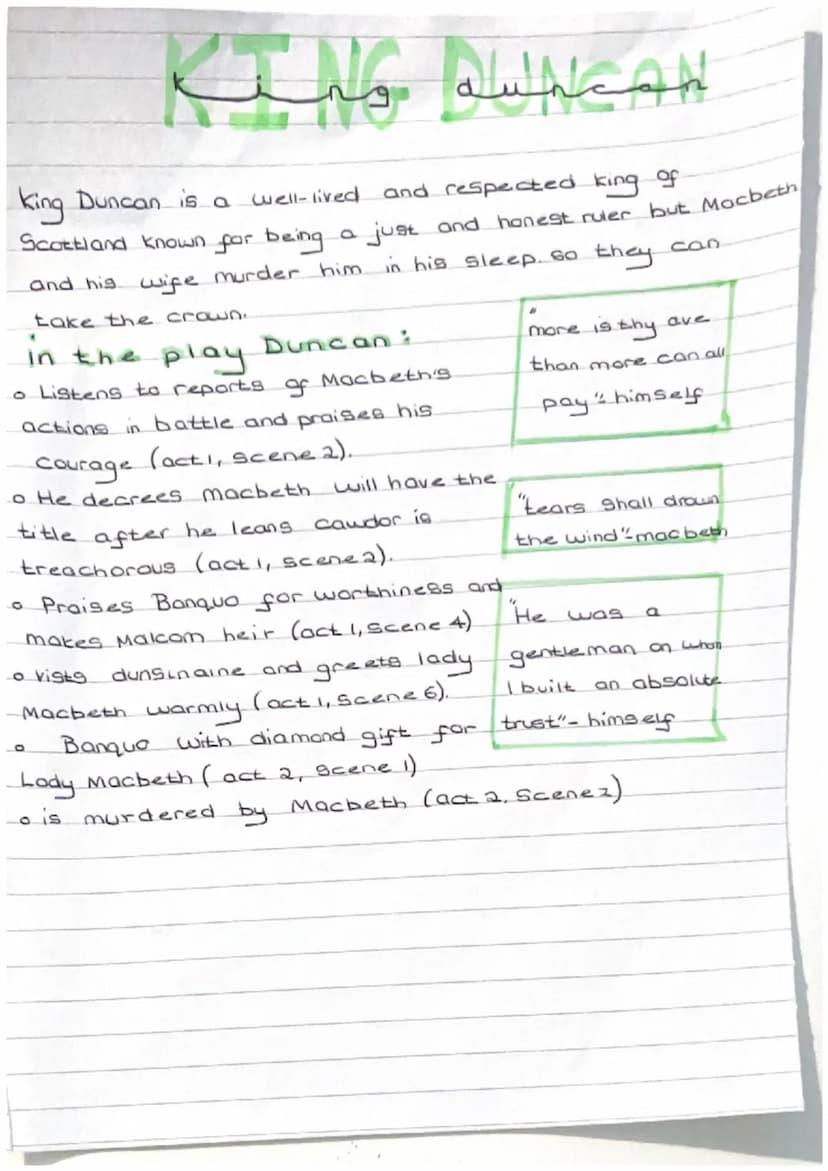 KING DUNCAN
king duncan
king Duncan is a well-lived and respected king of
Scottland known for being a just and honest ruler but Macbeth
and his wife murder him in his sleep. so they can
take the crown.
in the play Duncan:
o Listens to reports of Macbeth's
actions in battle and praises his
courage (act 1, scene 2).
o He decrees macbeth will have the
title after he leans caudor is
treachorous (act 1, scene 2).
o Praises Banquo for worthiness and
makes Malcom heir (act 1, scene 4)
o vists dunsinaine and greets lady
Macbeth warmly (act 1, scene 6).
o Banquo with diamond gift for
Lady Macbeth (act 2, scene 1)
o is murdered by Macbeth (act 2, scene 2)
"more is thy ave
than more can all
pay"- himself
"tears shall drown
the wind"-macbeth
"He was a
gentleman on whom
I built an absolute
trust"- himself